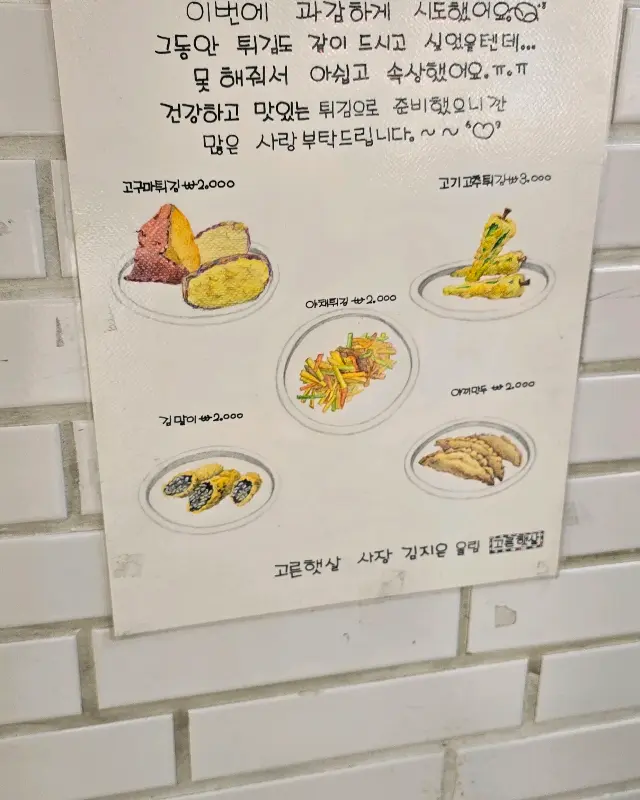 이번에 과감하게 시도했어요
그동안 튀김도 같이 드시고 싶었을텐데...
못 해줘서 아쉽고 속상했어요.ㅠ.ㅠ
건강하고 맛있는 튀김으로 준비했으니깐
많은 사랑 부탁드립니다. ~ ~
고구마튀김 ₩2.000
고기고추튀김 ₩3.000
야채튀김 ₩2.000
김말이 ₩2.000
야끼만두 ₩2.000
고른햇살 사장 김지은 올림 고른햇살